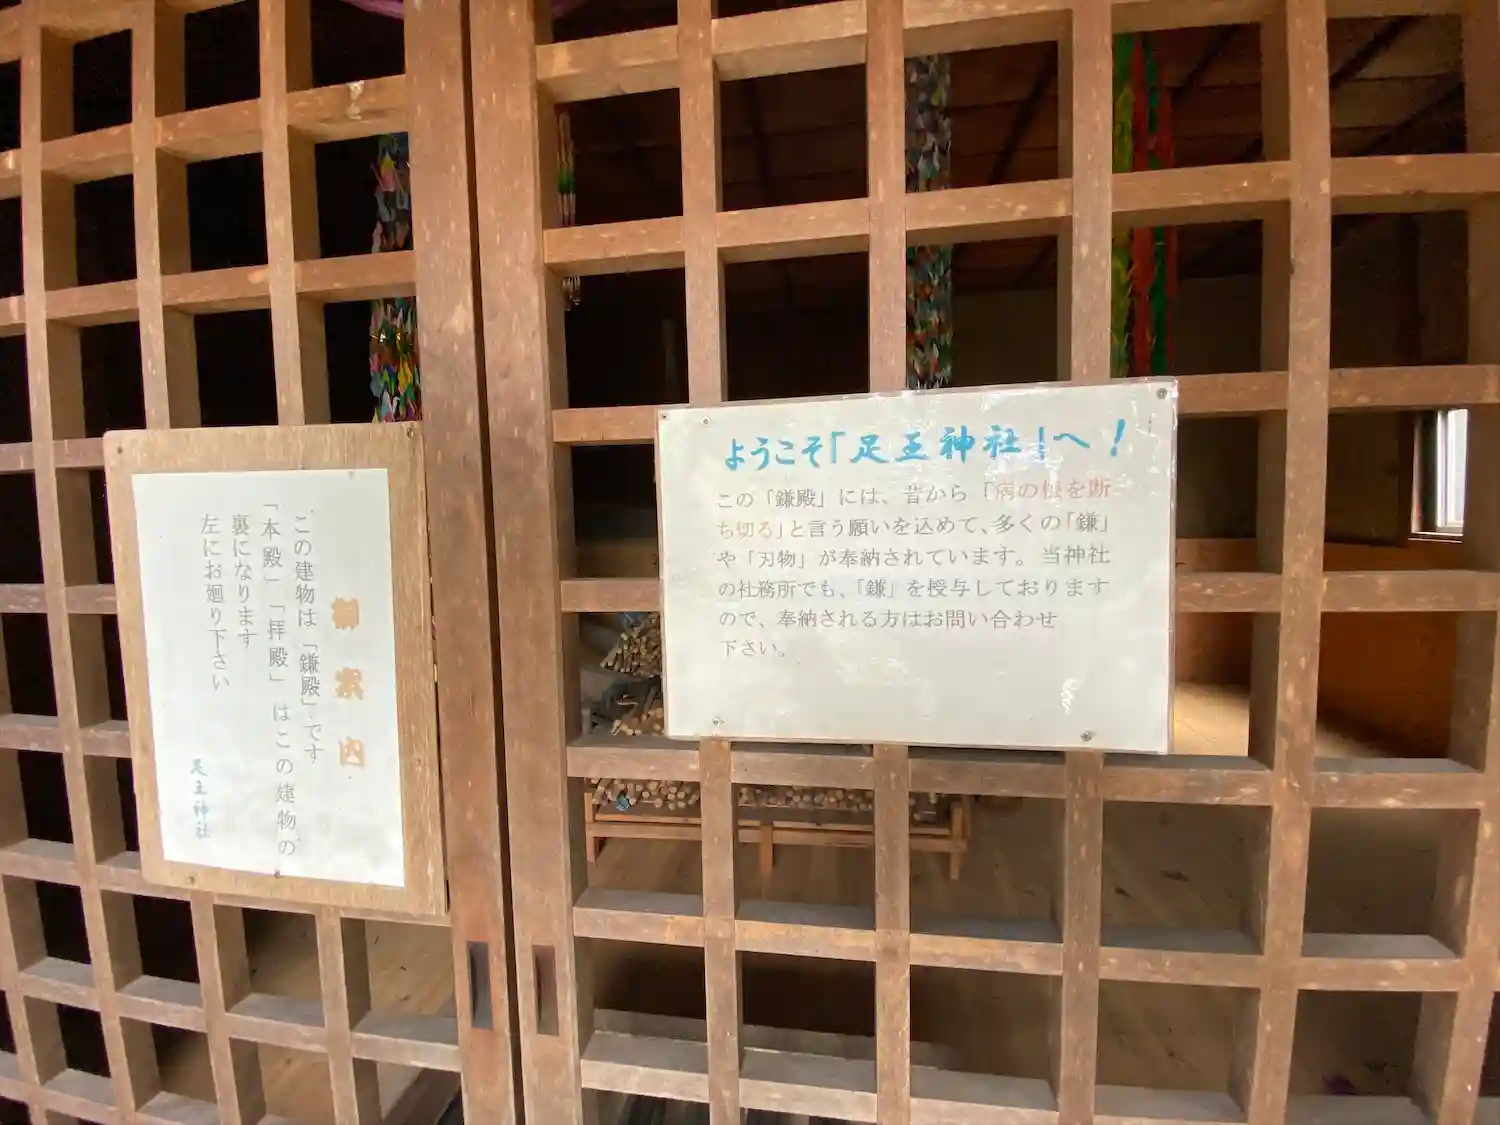 御案内
この建物は「鎌殿」です
「本殿」「拝殿」はこの建物の
裏になります
左にお廻り下さい
足王神社
ようこそ「足王神社」へ！
この「鎌殿」には、昔から「病の根を断
ち切る」と言う願いを込めて、多くの「鎌」
や「刃物」が奉納されています。当神社
の社務所でも、「鎌」を授与しております
ので、奉納される方はお問い合わせ
下さい。